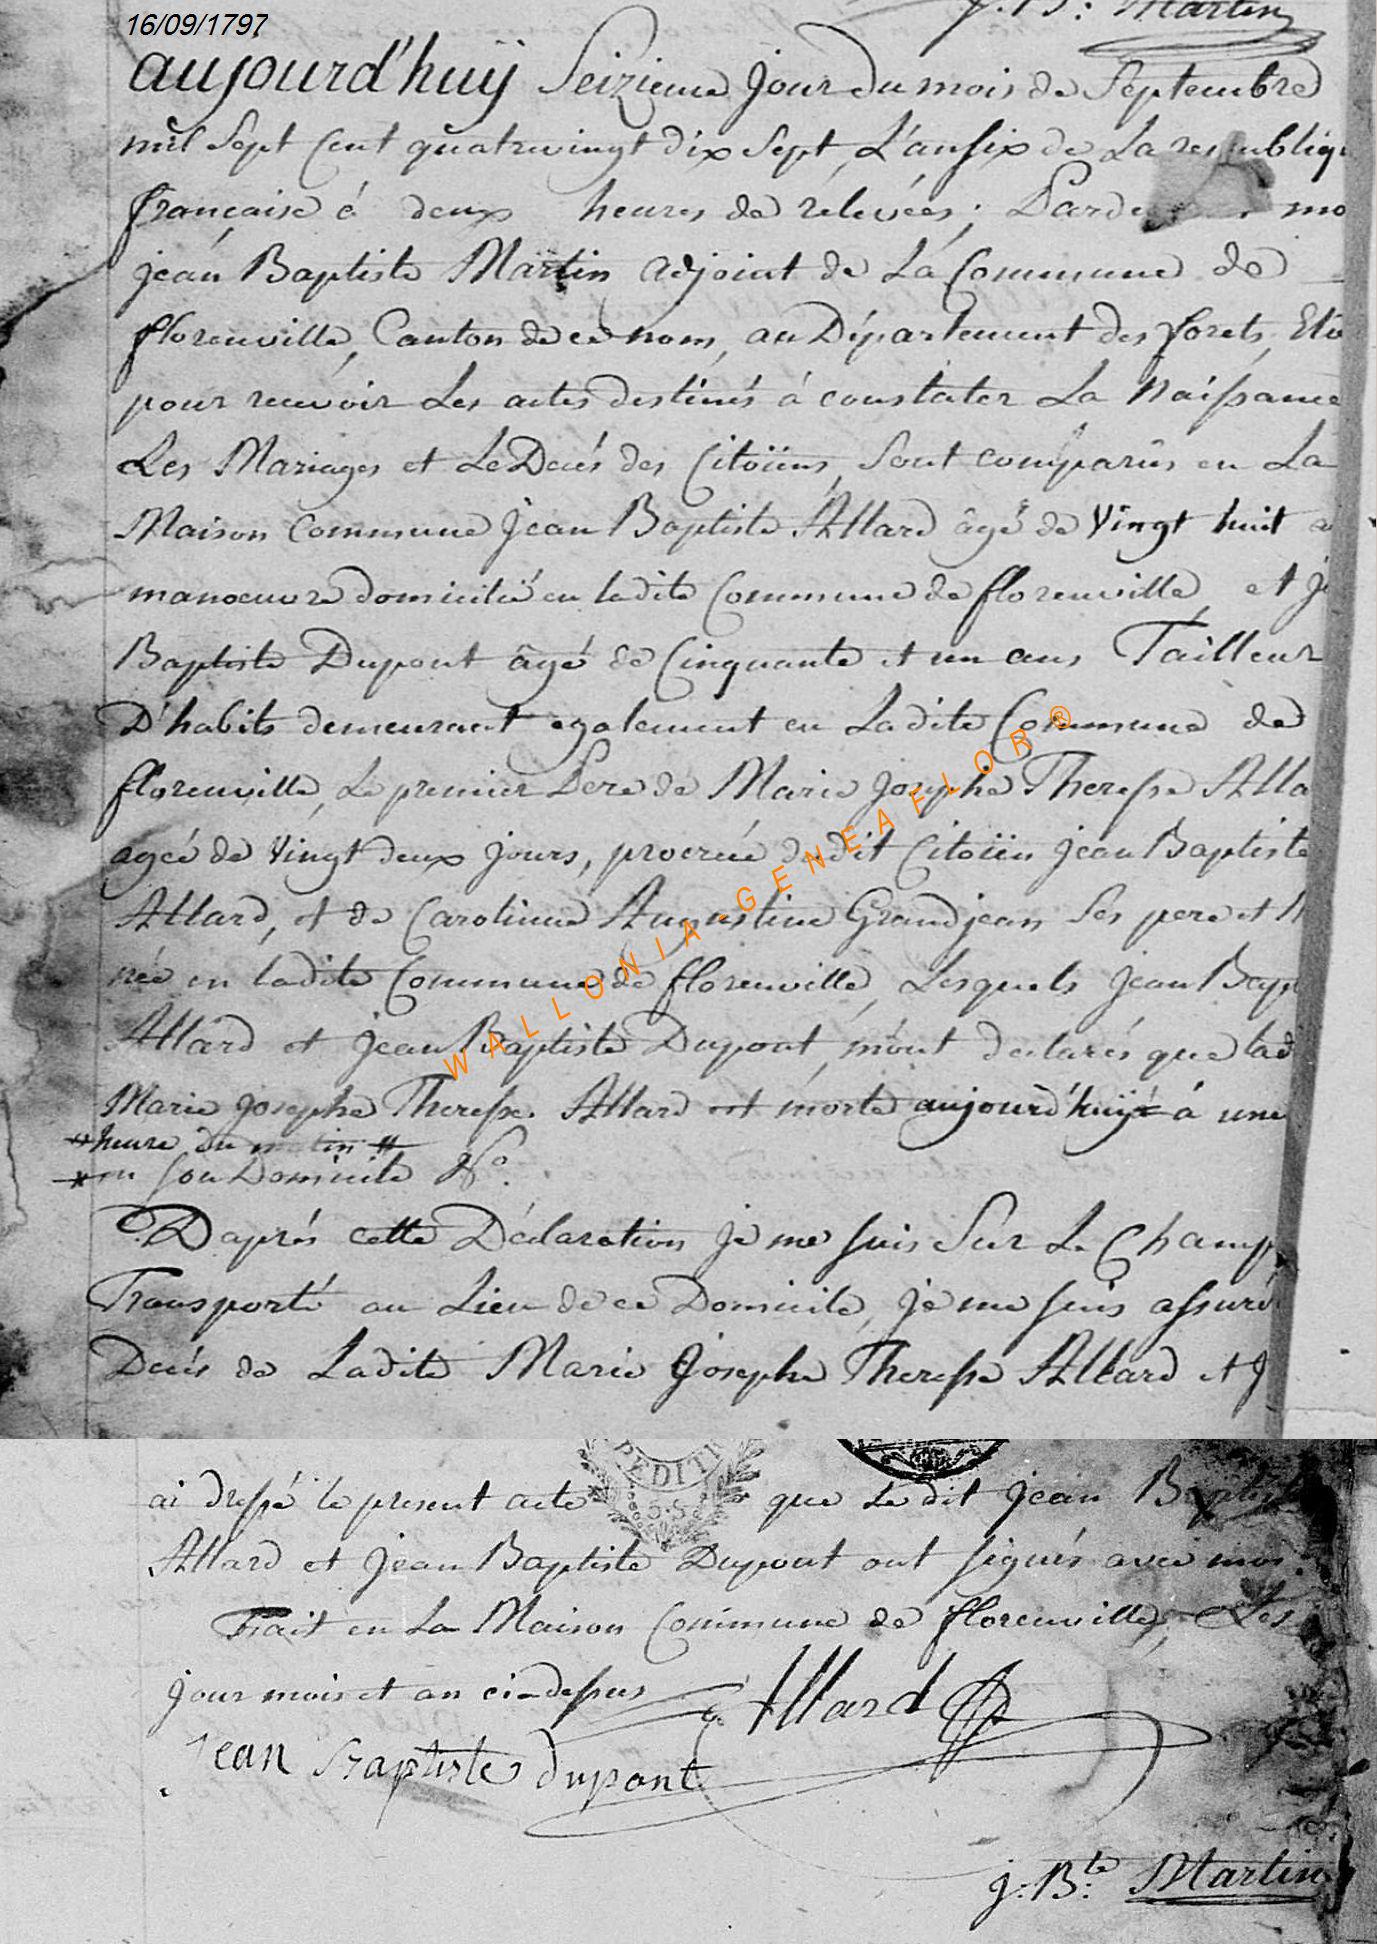 16/09/1797
J. B: Martin
aujourd'huÿ Seizieme jour du mois de Septembre
mil Sept Cent quatrevingt dix Sept, L'an six de La republiq
française á deux heures de rélévées; Parde mo
jean Baptiste Martin adjoint de La Commune de
florenville, Canton de ce nom, au Département des forets, Elu
pour recevoir Les actes destinés á constater La Naissance
Les Mariages et Le Decés des Citoïens, Sont comparus en La
Maison Commune Jean Baptiste Allard âgé de Vingt huit a
manoeuvre domicilié en ladite Commune de florenville, et je
Baptiste Dupont âgé de Cinquante et un ans Tailleur
D'habits demeurant egalement en Ladite Commune de
florenville, Le premier Pere de Marie Josephe Theresse Alla
agée de Vingt deux jours, procréé dudit Citoïen Jean Baptiste
Allard, et de Carolinne Augustine Grandjean Ses pere et M
née en ladite Commune de florenville, Lesquels Jean Bapt
Allard et Jean Baptiste Dupont, m'ont declarés que lad
Marie Josephe Theresse Allard est morte aujourd'huÿ á une
heure du matin
en son Domicile No.
D'aprés cette Déclaration je me suis Sur Le Champ
Transporté au Lieu de ce Domicile, je me suis assuré
Decés de Ladite Marie Josephe Theresse Allard et J
PEDITI
5.S
ai dressé le present acte que Le dit Jean Baptiste
Allard et Jean Baptiste Dupont ont signés avec moi.
Fait en La Maison Commune de florenville, Les
jour mois et an ci-dessus
Allard
Jean Baptiste dupont
j: B:te Martin
WALLONIA-GENEAELOR®